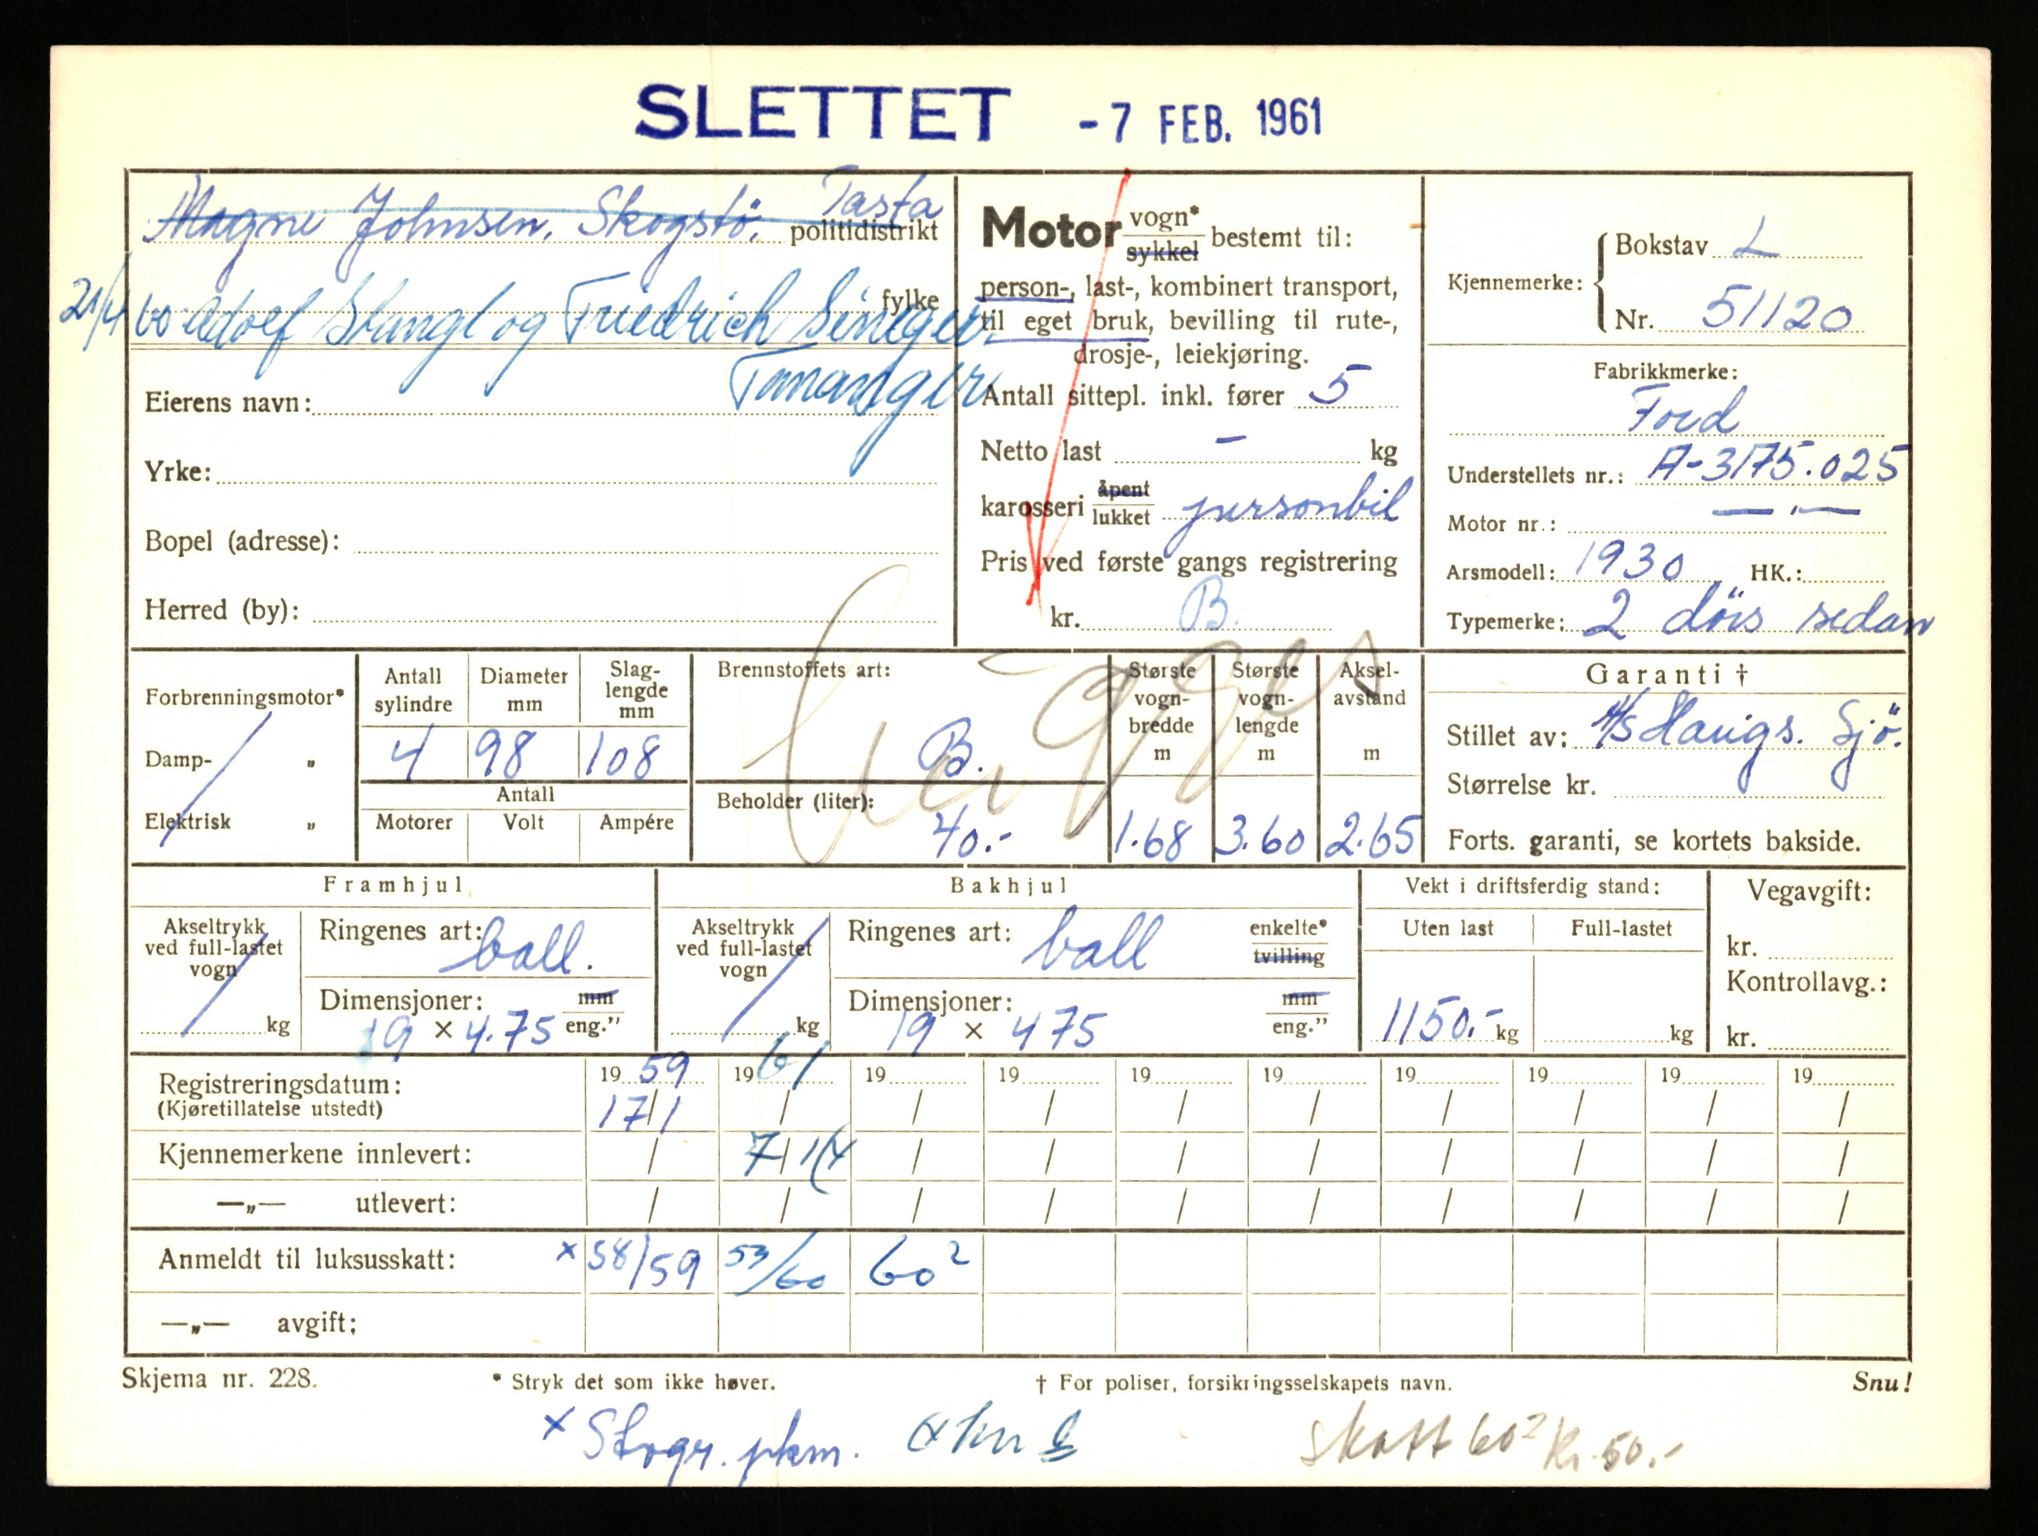 SLETTET - 7 FEB. 1961
Magne Johnsen. Skogstö. Tasta
politidistrikt
21/4 60 Adolf Stangl og Friedrich
fylke
Tananger
Eierens navn:
Yrke:
Bopel (adresse):
Herred (by):
Motor vogn* sykkel bestemt til:
person-, last-, kombinert transport,
til eget bruk, bevilling til rute-,
drosje-, leiekjøring.
Antall sittepl. inkl. fører 5
Netto last – kg
karosseri åpent lukket personbil
Pris ved første gangs registrering
kr. B.
Kjennemerke: Bokstav L
Nr. 51120
Fabrikkmerke:
Ford
Understellets nr.: A-3175.025
Motor nr.: — . —
Arsmodell: 1930 HK.:
Typemerke: 2 dörs sedan
Forbrenningsmotor*
Damp- „
Elektrisk „
Antall sylindre 4
Diameter mm 98
Slag-lengde mm 108
Antall
Motorer Volt Ampére
Brennstoffets art:
B.
Beholder (liter):
40.-
Største vogn-bredde m 1.68
Største vogn-lengde m 3.60
Aksel-avstand m 2.65
Garanti †
Stillet av: A/S Haugs. Sjö.
Størrelse kr.
Forts. garanti, se kortets bakside.
Framhjul
Akseltrykk ved full-lastet vogn / kg
Ringenes art: ball.
Dimensjoner: mm
19 × 4.75 eng."
Bakhjul
Akseltrykk ved full-lastet vogn / kg
Ringenes art: ball enkelte* tvilling
Dimensjoner: mm
19 × 475 eng."
Vekt i driftsferdig stand:
Uten last Full-lastet
1150.- kg kg
Vegavgift:
kr.
Kontrollavg.:
kr.
Registreringsdatum: 19 59 19 61 19 19 19 19 19 19 19 19
(Kjøretillatelse utstedt) 17/1 / / / / / / / / /
Kjennemerkene innlevert: / 7/1 / / / / / / / /
—„— utlevert: / / / / / / / / / /
Anmeldt til luksusskatt: × 58/59 53/60 60²
—„— avgift;
Skjema nr. 228. * Stryk det som ikke høver. † For poliser, forsikringsselskapets navn. Snu!
× Skogr. pkm. skatt 60² kr. 50.-